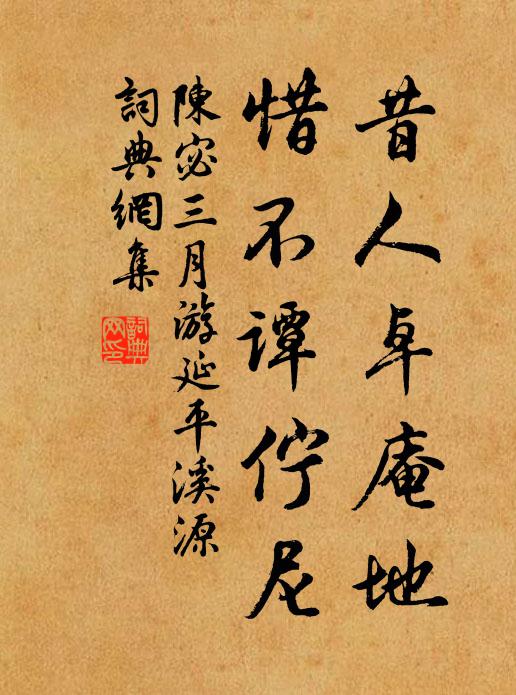 昔人卓庵地
惜不譚佇尼
陳宓三月游延平溪源
詞典網集
詞典网印